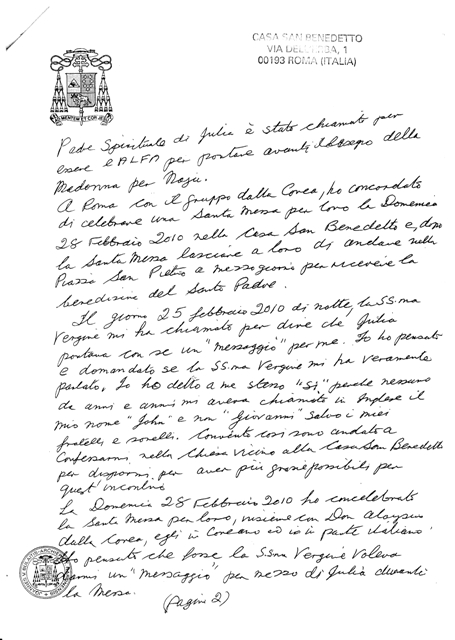 CASA SAN BENEDETTO
VIA DELL'ERBA, 1
00193 ROMA (ITALIA)
MENTEM ET COR JE
Padre Spirituale di Julia è stato chiamato per
essere e ALFA per portare avanti il disegno della
Madonna per Naju.
A Roma con il gruppo dalla Corea, ho concordato
di celebrare una Santa Messa per loro la Domenica
28 Febbraio 2010 nella Casa San Benedetto e, dopo
la Santa Messa lasciare a loro di andare nella
Piazza San Pietro a mezzogiorno per ricevere la
benedizione del Santo Padre.
Il giorno 25 febbraio 2010 di notte, la SS.ma
Vergine mi ha chiamato per dire che Julia
portava con se un "messaggio" per me. Io ho pensato
e domandato se la SS.ma Vergine mi ha veramente
parlato, Io ho detto a me stesso "Si," perché nessuno
da anni e anni mi aveva chiamato in Inglese il
mio nome "John" e non "Giovanni" salvo i miei
fratelli e sorelle. Convinto così sono andato a
Confessarmi nella Chiesa vicino alla Casa San Benedetto
per dispormi per aver più grazie possibili per
quest'incontro
La Domenica 28 Febbraio 2010 ho concelebrato
la Santa Messa per loro, insieme con Don Aloysius
dalla Corea, egli in Coreano ed io in parte italiano
Ho pensato che forse la SS.ma Vergine voleva
darmi un "messaggio" per mezzo di Julia durante
la Messa.
(Pagina 2)